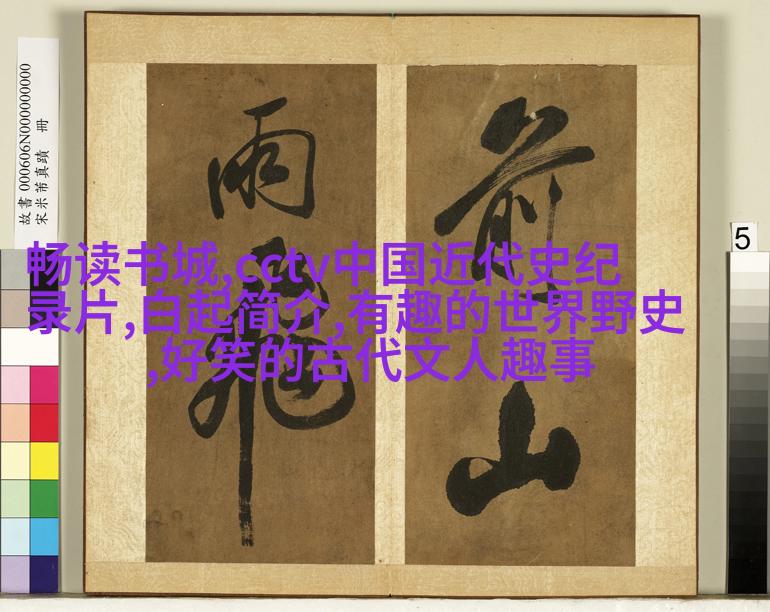 故書 000606N000000000
宋米芾真蹟 冊
前山
雨飛
畅读书城,cctv中国近代史纪
录片,白起简介,有趣的世界野史
,好笑的古代文人趣事
5